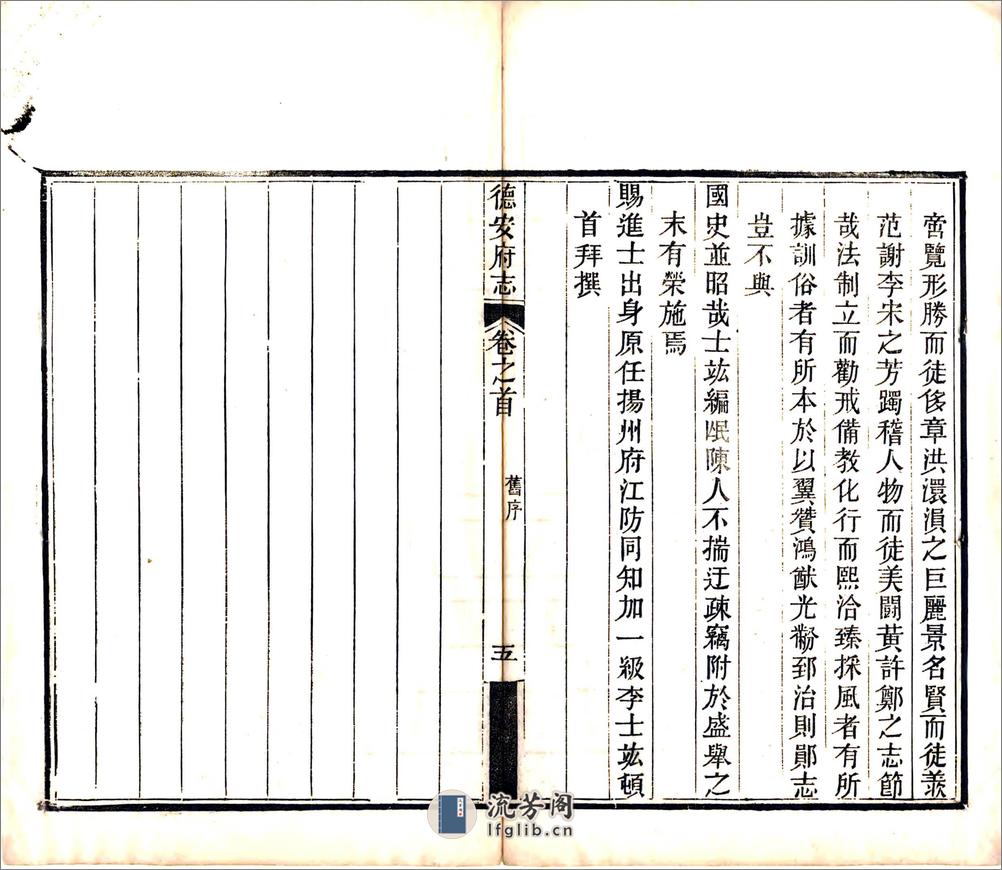 啻覽形勝而徒侈章洪澴溳之巨麗景名賢而徒羨
范謝李宋之芳躅稽人物而徒美鬭黃許鄭之志節
哉法制立而勸戒備教化行而熙洽臻採風者有所
據訓俗者有所本於以翼贊鴻猷光黼郅治則鄖志
豈不與
國史並昭哉士竑編氓陳人不揣迂疎竊附於盛舉之
末有榮施焉
賜進士出身原任揚州府江防同知加一級李士竑頓
首拜撰
德安府志
卷之首
舊序
五
流芳阁
lfglib.cn